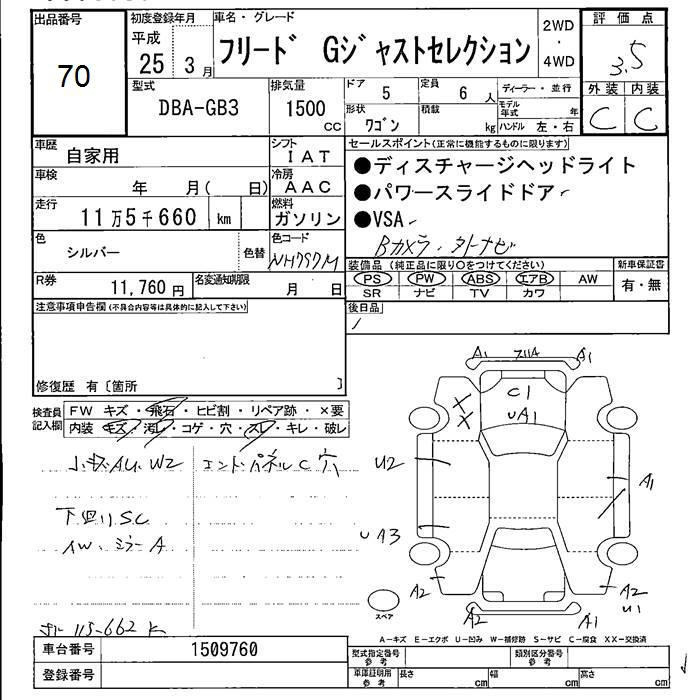 出品番号 初度登録年月 車名・グレード 2WD・4WD 評価点
70 平成 25 3月 フリード Gジャストセレクション 3.5
型式 排気量 ドア 5 定員 6人 ディーラー・並行 外装 内装
DBA-GB3 1500cc 形状 ワゴン 積載 kg モデル年式 年 ハンドル 左・右 C C
車歴 自家用 シフト IAT セールスポイント(正常に機能するものに限ります)
車検 年 月( 日) 冷房 AAC ●ディスチャージヘッドライト
走行 11万5千660 km 燃料 ガソリン ●パワースライドドア
●VSA
色 シルバー 色替 色コード NH797M Bカメラ・タトナビ
装備品(純正品に限り○をつけてください) 新車保証書
R券 11,760円 名変通知期限 月 日 PS PW ABS エアB AW 有・無
SR ナビ TV カワ
注意事項申告欄(不具合内容等は具体的に記入して下さい) 後日品
修復歴 有〔箇所 〕
検査員記入欄 FW キズ・飛石・ヒビ割・リペア跡・×要
内装 キズ・汚レ・コゲ・穴・スレ・キレ・破レ
小キズAU、W2 エンドパネルC穴
下回りSC
AW、ミラーA
115-662K
A1 フリA A1
C1
UA1
X
X
U2
A1
UA3
A2 A2
U1
A2 A1
スペア
A-キズ E-エクボ U-凹み W-補修跡 S-サビ C-腐食 XX-交換済
車台番号 1509760 型式指定番号 参考 類別区分番号 参考
登録番号 車庫証明用 参考 長さ cm 幅 cm 高さ cm